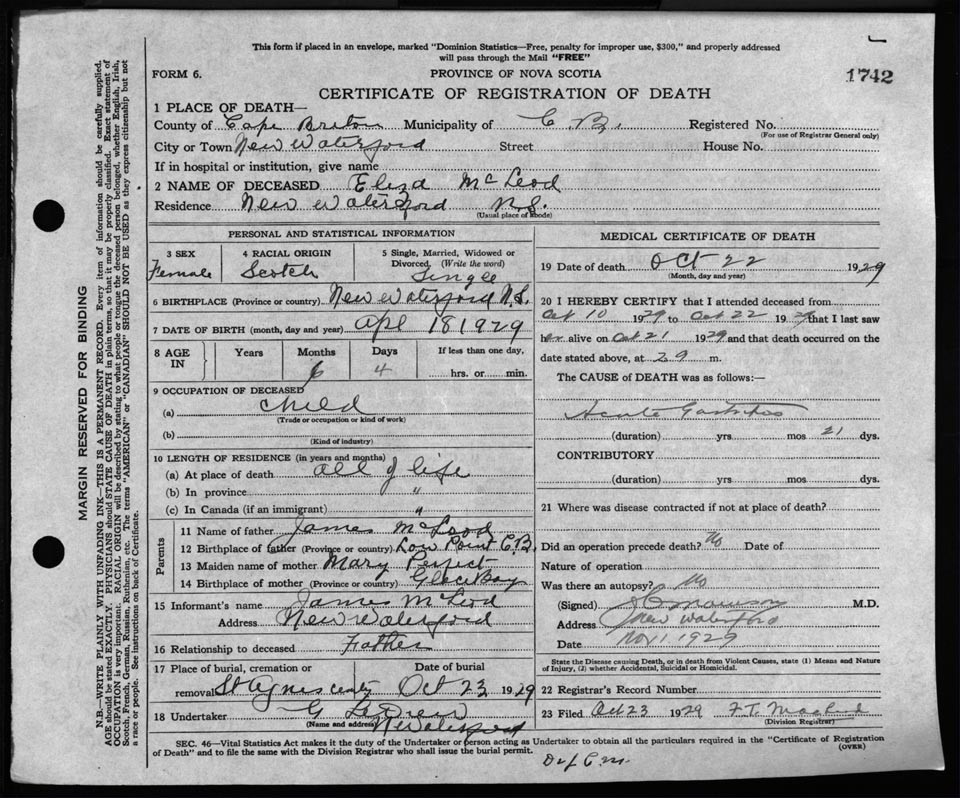 This form if placed in an envelope, marked "Dominion Statistics—Free, penalty for improper use, $300," and properly addressed
will pass through the Mail "FREE"
FORM 6.
PROVINCE OF NOVA SCOTIA
1742
CERTIFICATE OF REGISTRATION OF DEATH
1 PLACE OF DEATH—
County of Cape Breton Municipality of C. B. Registered No.
(For use of Registrar General only)
City or Town New Waterford Street House No.
If in hospital or institution, give name
2 NAME OF DECEASED Eliza McLeod
Residence New Waterford N.S.
(Usual place of abode)
PERSONAL AND STATISTICAL INFORMATION
3 SEX 4 RACIAL ORIGIN 5 Single, Married, Widowed or
Divorced. (Write the word)
Female Scotch Single
6 BIRTHPLACE (Province or country) New Waterford N.S.
7 DATE OF BIRTH (month, day and year) Apl 18 1929
8 AGE IN Years Months Days If less than one day,
6 4 hrs. or min.
9 OCCUPATION OF DECEASED
(a) child
(Trade or occupation or kind of work)
(b)
(Kind of industry)
10 LENGTH OF RESIDENCE (in years and months)
(a) At place of death all of life
(b) In province "
(c) In Canada (if an immigrant) "
Parents
11 Name of father James McLeod
12 Birthplace of father (Province or country) Low Point C.B.
13 Maiden name of mother Mary Perfect
14 Birthplace of mother (Province or country) Glace Bay
15 Informant's name James McLeod
Address New Waterford
16 Relationship to deceased Father
17 Place of burial, cremation or Date of burial
removal St Agnes Oct 23 1929
18 Undertaker G
(Name and address) N Waterford
MEDICAL CERTIFICATE OF DEATH
19 Date of death Oct 22 1929
(Month, day and year)
20 I HEREBY CERTIFY that I attended deceased from
Oct 10 1929 to Oct 22 1929 that I last saw
her alive on Oct 21 1929 and that death occurred on the
date stated above, at m.
The CAUSE of DEATH was as follows:—
Acute Gastritis
(duration) yrs. mos 21 dys.
CONTRIBUTORY
(duration) yrs. mos. dys.
21 Where was disease contracted if not at place of death?
Did an operation precede death? No Date of
Nature of operation
Was there an autopsy? No
(Signed) M.D.
Address New Waterford
Date Nov 1 1929
State the Disease causing Death, or in death from Violent Causes, state (1) Means and Nature
of Injury, (2) whether Accidental, Suicidal or Homicidal.
22 Registrar's Record Number
23 Filed Oct 23 1929 F.T.
(Division Registrar)
SEC. 46—Vital Statistics Act makes it the duty of the Undertaker or person acting as Undertaker to obtain all the particulars required in the "Certificate of Registration
of Death" and to file the same with the Division Registrar who shall issue the burial permit.
(OVER)
MARGIN RESERVED FOR BINDING
N.B.—WRITE PLAINLY WITH UNFADING INK—THIS IS A PERMANENT RECORD. Every item of information should be carefully supplied.
AGE should be stated EXACTLY. PHYSICIANS should STATE CAUSE OF DEATH in plain terms, so that it may be properly classified. Exact statement of
OCCUPATION is very important. RACIAL ORIGIN will be described by stating to what people or tongue the deceased person belonged, whether English, Irish,
Scotch, French, German, Russian, Ruthenian, etc. The terms "AMERICAN" or "CANADIAN" SHOULD NOT BE USED as they express citizenship but not
a race or people. See instructions on back of Certificate.